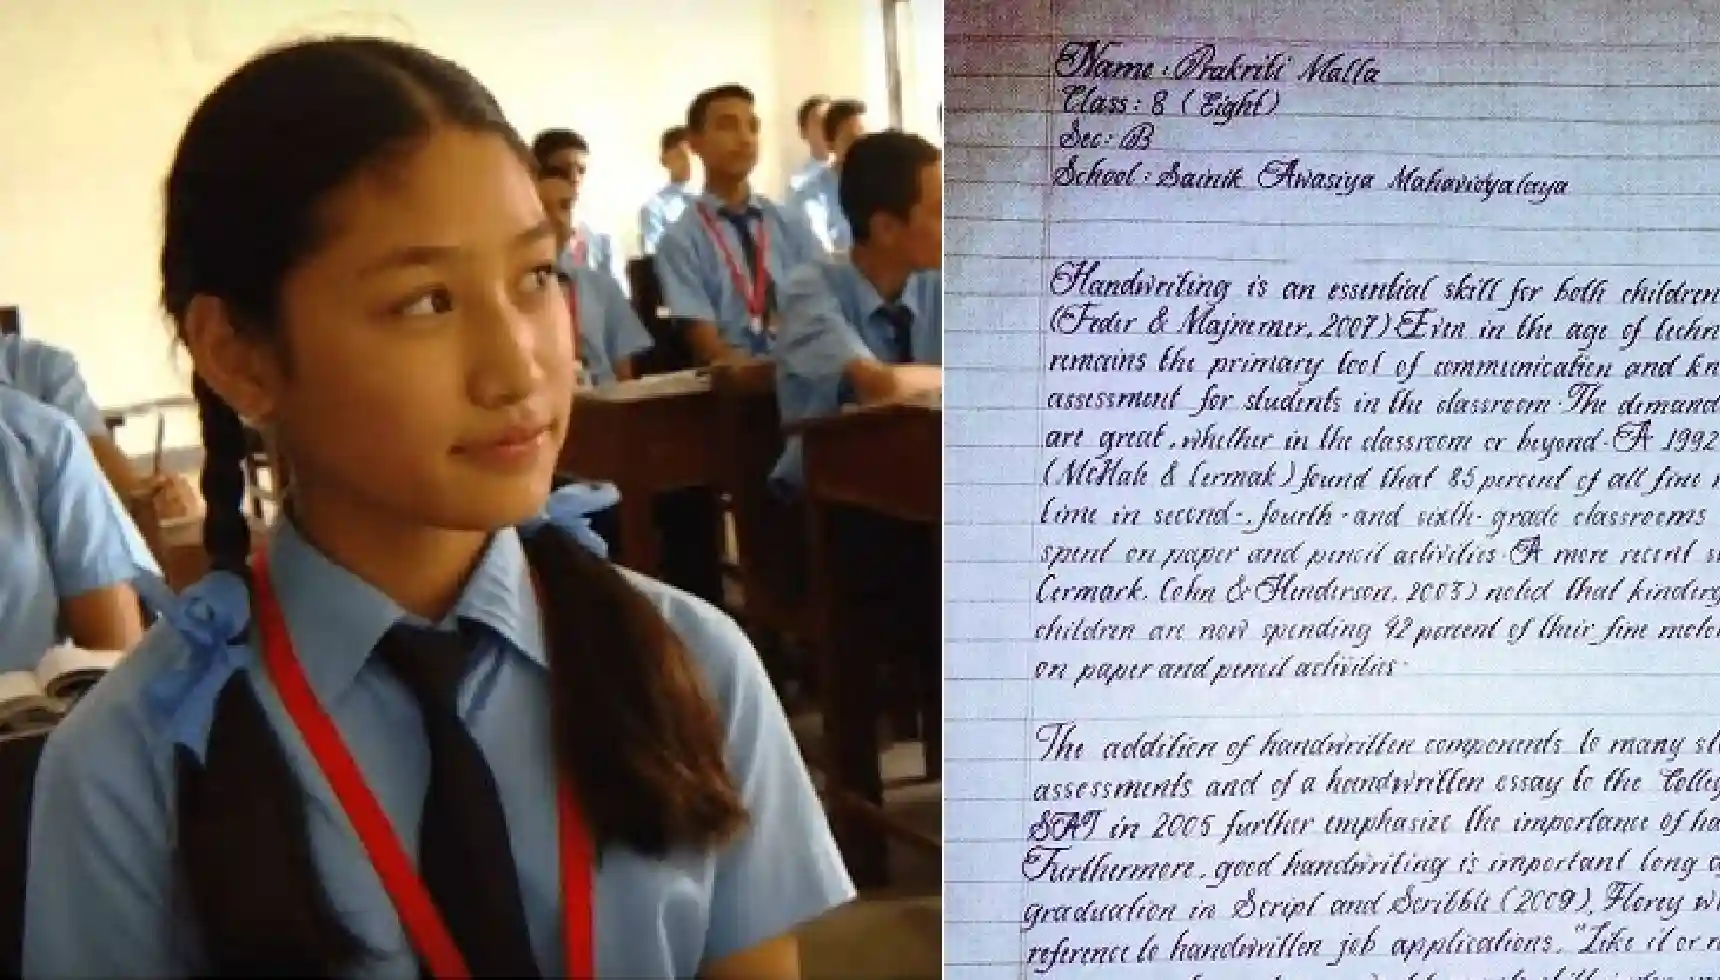 Name : Prakriti Malla
Class : 8 ( Eight )
Sec : B
School : Sainik Awasiya Mahavidyalaya
Handwriting is an essential skill for both children
(Feder & Majnemer, 2007) Even in the age of
remains the primary tool of communication and
assessment for students in the classroom. The demand
are great, whether in the classroom or beyond. A 1992
(McHale & Cermak) found that 85 percent of all fine
time in second-, fourth-and sixth-grade classrooms
spent on paper and pencil activities. A more recent
Cermark, Cohn & Henderson, 2003) noted that
children are now spending 42 percent of their fine
on paper and pencil activities.
The addition of handwritten components to many
assessments and of a handwritten essay to the
SAT in 2005 further emphasize the importance of
Furthermore, good handwriting is important long
graduation in Script and Scribble (2009), Florey
reference to handwritten job applications, "Like it or